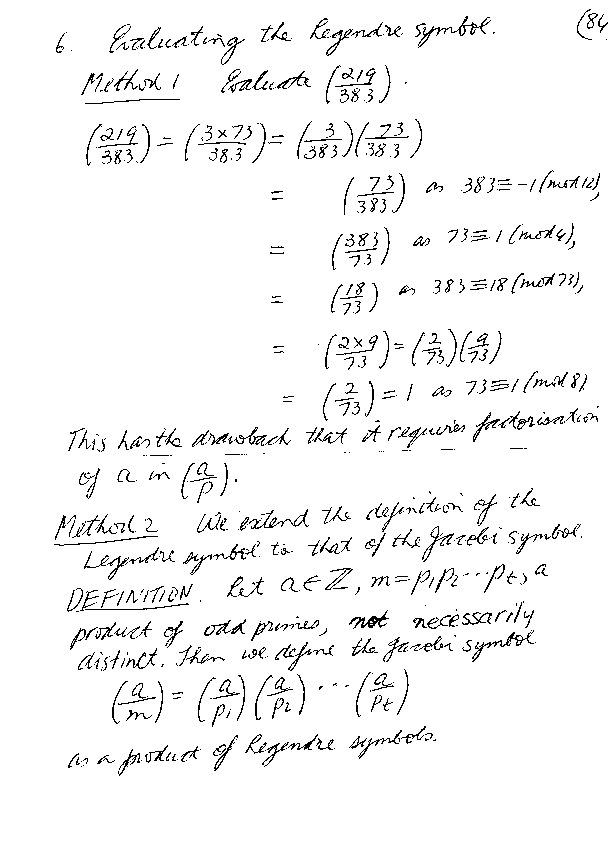 6. Evaluating the Legendre symbol. (84
Method 1 Evaluate (219/383).
(219/383) = (3×73/383) = (3/383)(73/383)
= (73/383) as 383≡-1(mod 12),
= (383/73) as 73≡1(mod 4),
= (18/73) as 383≡18(mod 73),
= (2×9/73) = (2/73)(9/73)
= (2/73) = 1 as 73≡1(mod 8)
This has the drawback that it requires factorisation
of a in (a/p).
Method 2 We extend the definition of the
Legendre symbol to that of the Jacobi symbol.
DEFINITION. Let a∈ℤ, m=p₁p₂···pₜ, a
product of odd primes, not necessarily
distinct. Then we define the Jacobi symbol
(a/m) = (a/p₁)(a/p₂) ··· (a/pₜ)
as a product of Legendre symbols.